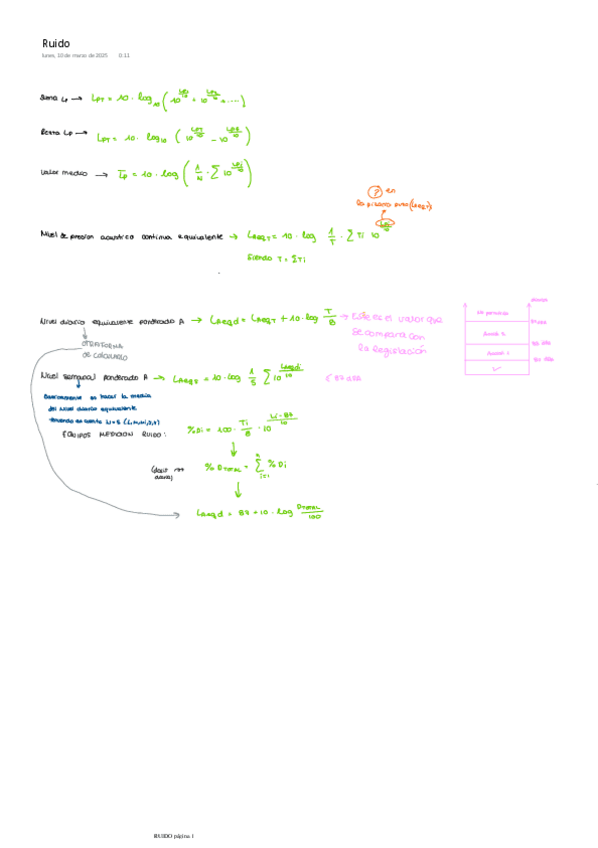 Ruido
lunes, 10 de marzo de 2025 0:11
Suma Lp → LPT = 10 · log10 (10^(LP1/10) + 10^(LP2/10) + ....)
Resta Lp → LPT = 10 · log10 (10^(LPT/10) - 10^(LPB/10))
Valor medio → Lp = 10 · log (1/N · Σ 10^(LPi/10))
? en
la pizarra puso (LAeqT)
Nivel de presion acustica continua equivalente → LAeqT = 10 · log 1/T · Σ Ti 10
Siendo T = ΣTi
Nivel diario equivalente ponderado A → LAeqd = LAeqT + 10 · log T/8 → Este es el valor que
se compara con
la legislación
OTRA FORMA
de calcularlo
Nivel semanal ponderado A → LAeqs = 10 · log 1/5 Σ 10^(LAeqdi/10) ≤ 87 dBA
Basicamente es hacer la media
del nivel diario equivalente
teniendo en cuenta N=5 (L,M,M,J,V)
EQUIPOS MEDICION RUIDO: %Di = 100 · Ti/8 · 10^(Li-87/10)
→ % DTOTAL = Σ i=1 n % Di
LAeqd = 87 + 10 · log DTOTAL/100
No permitido
87 dBA
Accion 2
85 dBA
Accion 1
80 dBA
✓
RUIDO página 1